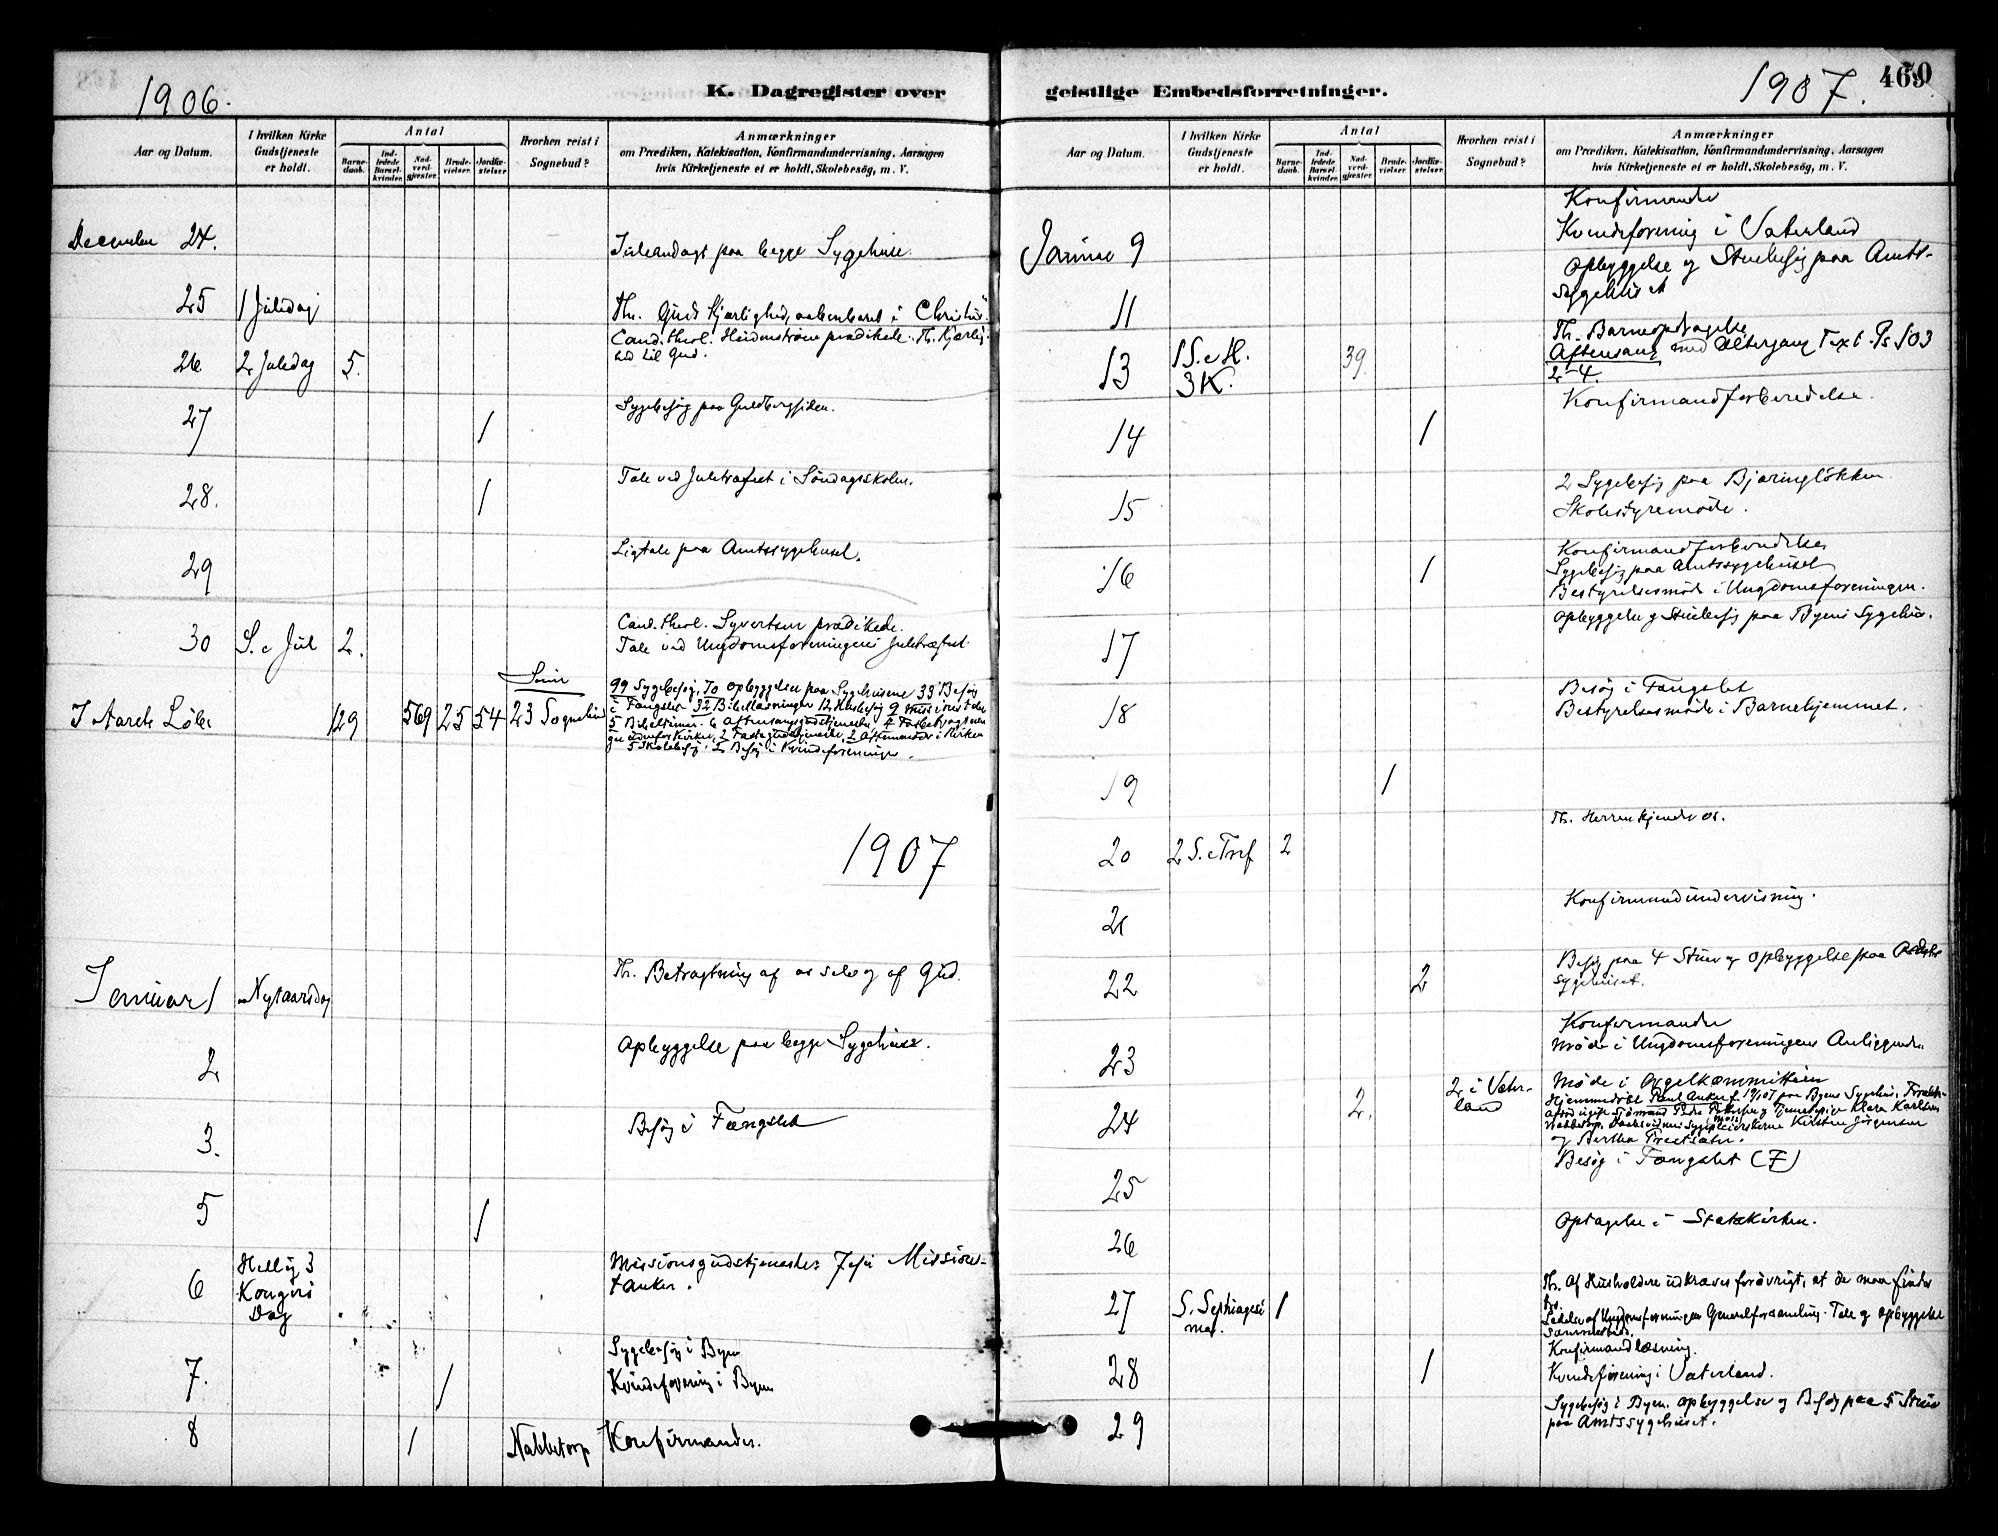 1906.
K. Dagregister over
Aar og Datum.
I hvilken Kirke Gudstjeneste er holdt.
Antal
Barnedaab.
Indledede Barselkvinder.
Nadverdgjæster.
Brudevielser.
Jordfæstelser.
Hvorhen reist i Sognebud?
Anmærkninger
om Prædiken, Katekisation, Konfirmandundervisning, Aarsagen
hvis Kirketjeneste ei er holdt, Skolebesög, m. V.
December 24.
Juleandagt paa begge Sygehuse.
25 1 Juledag
Th. Guds Kjærlighed, aabenbaret i Christus.
26 2 Juledag 5.
Cand. theol. Heidenstrøm prædikede. Th. Kjærlighed til Gud.
27 1
Sygebesøg paa Guldbergsiden.
28. 1
Tale ved Juletræfest i Søndagsskolen.
29
Ligtale paa Amtssygehuset.
30 S. e Jul 2.
Cand. theol. Syvertsen prædikede.
Tale ved Ungdomsforeningens Juletræfest.
I Aarets Løb 129 569 25 54 23 Sognebud
99 Sygebesøg, 70 Opbyggelser paa Sygehusene 33 Besøg
i Fængslet 32 Bibellæsninger 12 Husbesøg 9
5 Bibeltimer. 6 Aftensangsgudstjenester, 4
udenfor Kirken, 2 Fastegudstjenester, 2 Aftenmøder i Kirken
5 Skolebesøg, 2 Besøg i Kvindeforeninger.
1907
Januar 1 Nytaarsdag
Th. Betragtning af os selv og af Gud.
2
Opbyggelse paa begge Sygehuse.
3.
Besøg i Fængslet
5 1
6 Hellig 3 Kongers Dag
Missionsgudstjeneste: Jesu Missionstanker.
7. 1
Sygebesøg i Byen
Kvindeforening i Byen
8 1 Nabbetorp
Konfirmander.
1907.
469
70
geistlige Embedsforretninger.
Aar og Datum.
I hvilken Kirke Gudstjeneste er holdt.
Antal
Barnedaab.
Indledede Barselkvinder.
Nadverdgjæster.
Brudevielser.
Jordfæstelser.
Hvorhen reist i Sognebud?
Anmærkninger
om Prædiken, Katekisation, Konfirmandundervisning, Aarsagen
hvis Kirketjeneste ei er holdt, Skolebesög, m. V.
Konfirmander
Januar 9
Kvindeforening i Vaterland
11
Opbyggelse og Stuebesøg paa Amtssygehuset
13 1 S. e H. 3 K. 39.
Th. Barneopdragelse
Aftensang med Altergang Text Ps 103
2-4.
14 1
Konfirmandforberedelse.
15
2 Sygebesøg paa Bjaringløkken
Skolestyremøde.
16 1
Konfirmandforberedelse
Sygebesøg paa Amtssygehuset
Bestyrelsesmøde i Ungdomsforeningen.
17
Opbyggelse og Stuebesøg paa Byens Sygehus.
18
Besøg i Fængslet
Bestyrelsesmøde i Barnehjemmet.
19 1
20 2 S. e Tref 2
Th. Herren kjender os.
21
Konfirmandundervisning.
22 2
Besøg paa 4 Stuer og Opbyggelse paa
Sygehuset.
23
Konfirmander
Møde i Ungdomsforeningens Anliggender
24 2. 2 i Vaterland
Møde i Orgelkommitteen
Hjemmedøbt paa Byens Sygehus,
Klara Karlsen
Nabbetorp. Kirstine Jørgensen
og Bertha
25
Besøg i Fængslet (7)
26
Optagelse i Statskirken.
27 S. Septuagesima. 1
Th. Af Husholdere udkræves forøvrigt, at de maa findes tro.
Ledelse af Ungdomsforeningens Generalforsamling. Tale og Opbyggelse
sammesteds.
28 1
Konfirmandlæsning.
Kvindeforening i Vaterland.
29
Sygebesøg i Byen. Opbyggelse og Besøg paa 5 Stuer
paa Amtssygehuset.